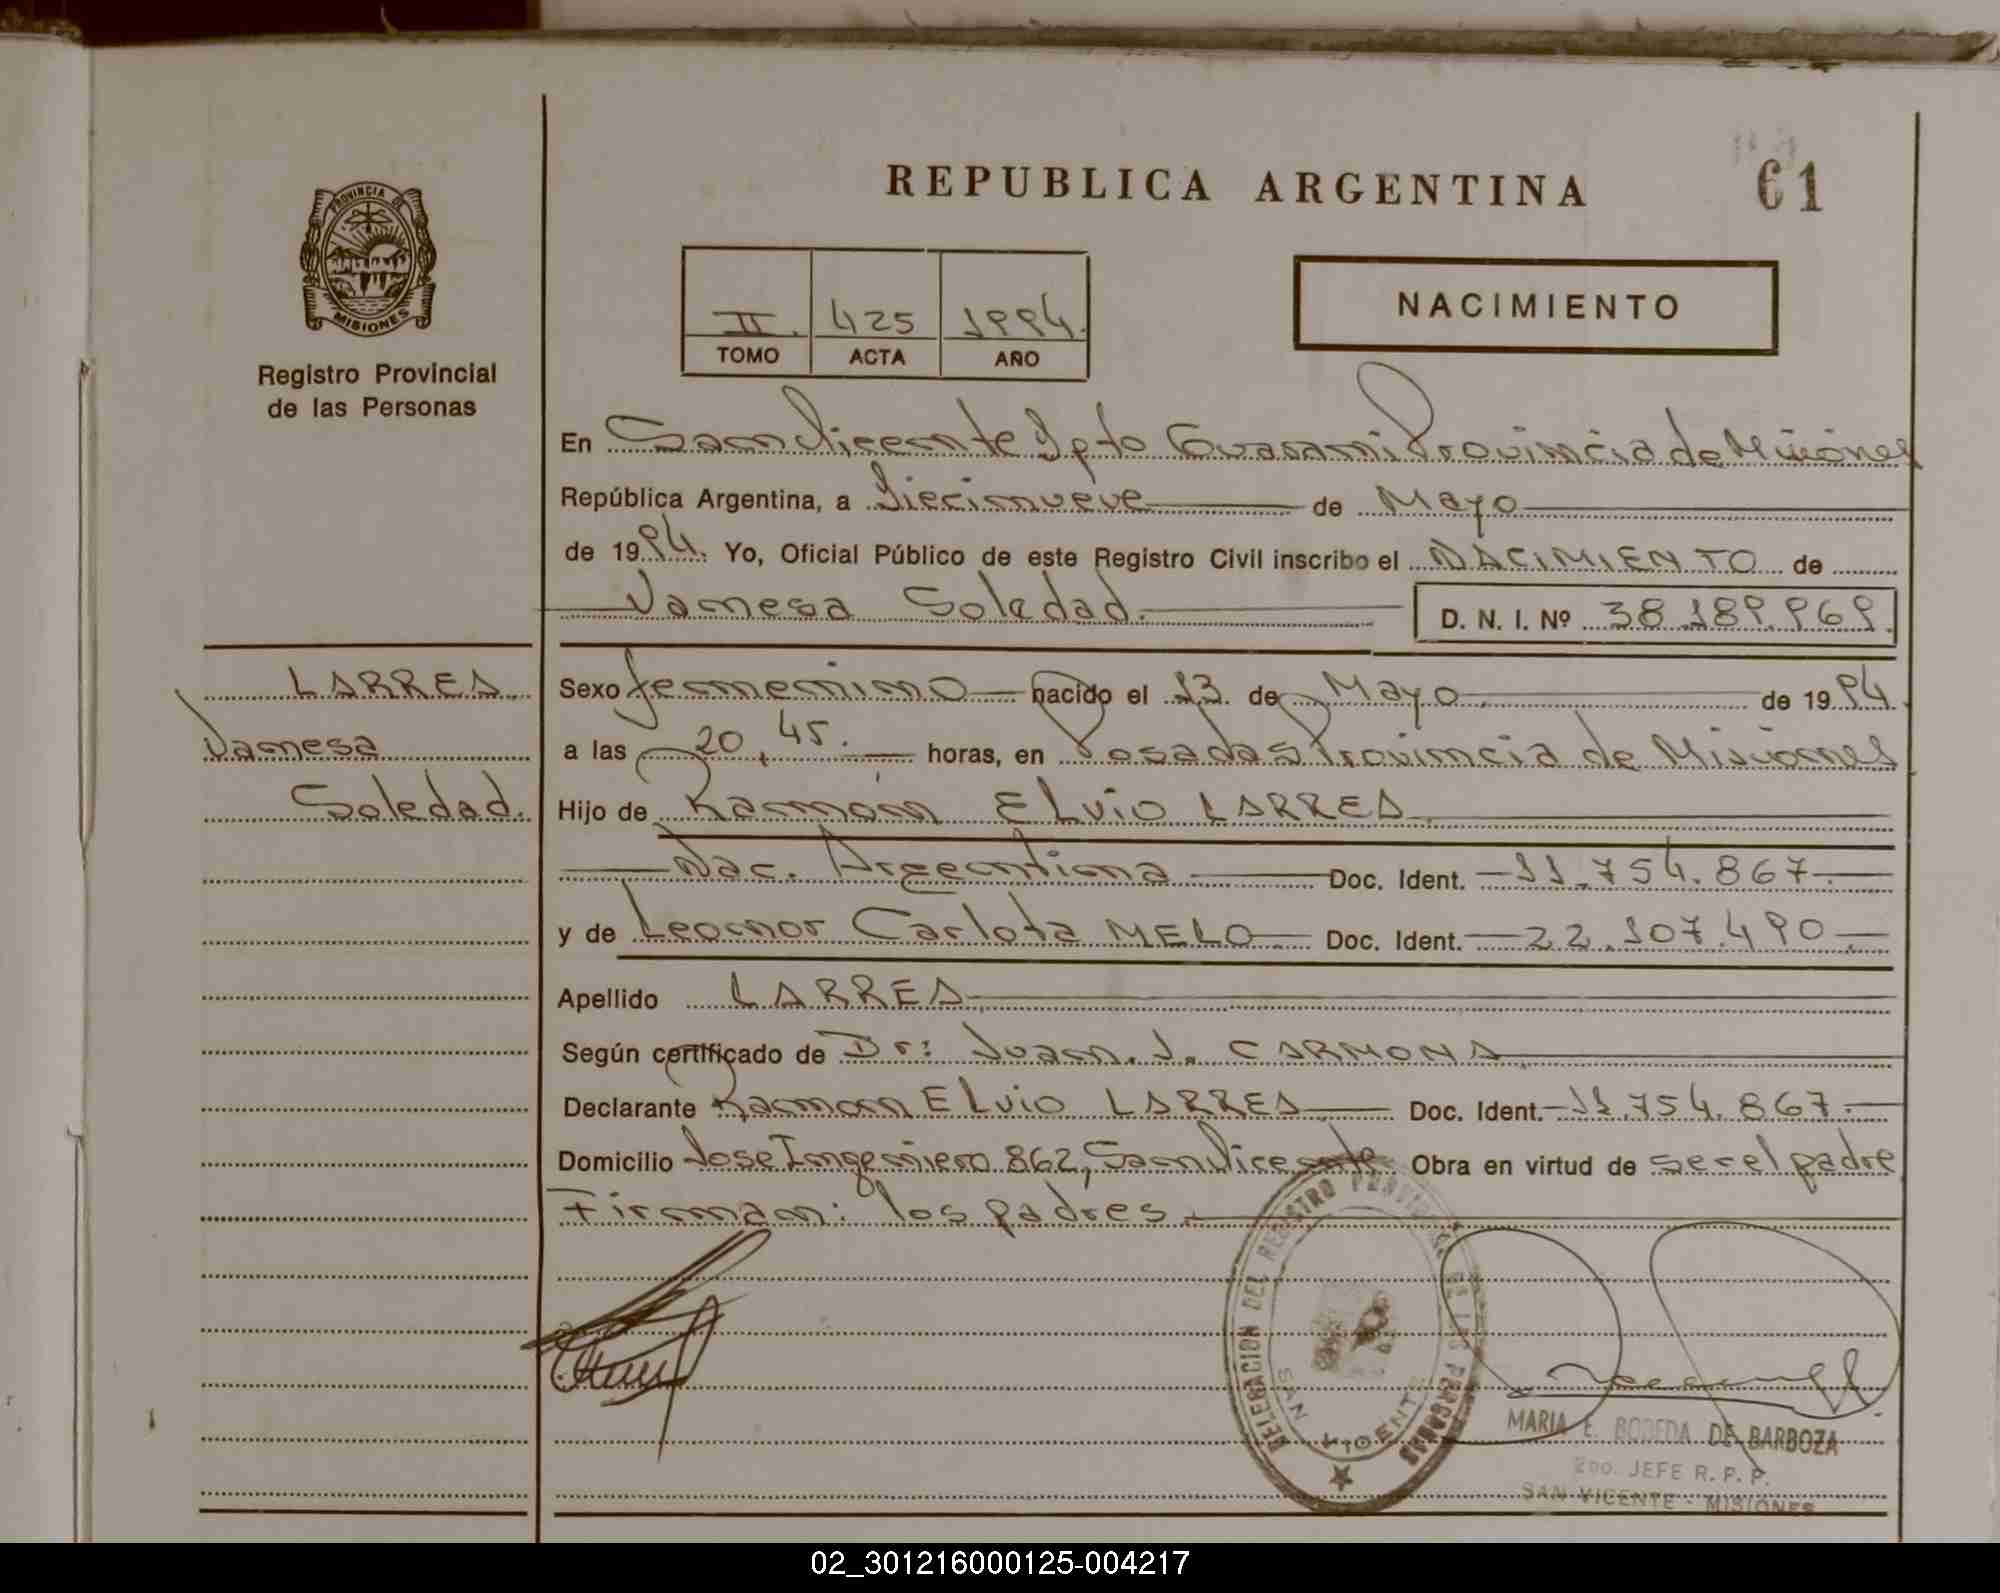 REPUBLICA ARGENTINA
61
PROVINCIA DE
MISIONES
Registro Provincial
de las Personas
II. 425 1994.
TOMO ACTA AÑO
NACIMIENTO
En San Vicente Dpto Guarani Provincia de Misiones
República Argentina, a Diecinueve de Mayo
de 1994. Yo, Oficial Público de este Registro Civil inscribo el NACIMIENTO de
Vanesa Soledad. D. N. I. Nº 38.189.969.
LARREA
Vanesa
Soledad.
Sexo femenino nacido el 13. de Mayo de 1994.
a las 20,45. horas, en Posadas Provincia de Misiones
Hijo de Ramón Elvio LARREA
Nac. Argentina Doc. Ident. 11.754.867.
y de Leonor Carlota MELO Doc. Ident. 22.107.490.
Apellido LARREA
Según certificado de Dr: Juan. J. CARMONA
Declarante Ramon Elvio LARREA Doc. Ident. 11.754.867.
Domicilio Jose Ingeniero 862, San Vicente Obra en virtud de ser el padre
Firman: los padres.
DELEGACION DEL REGISTRO PROVINCIAL DE LAS PERSONAS
SAN VICENTE
MARIA E. BOBEDA DE BARBOZA
2do. JEFE R. P. P.
SAN VICENTE - MISIONES
02_301216000125-004217